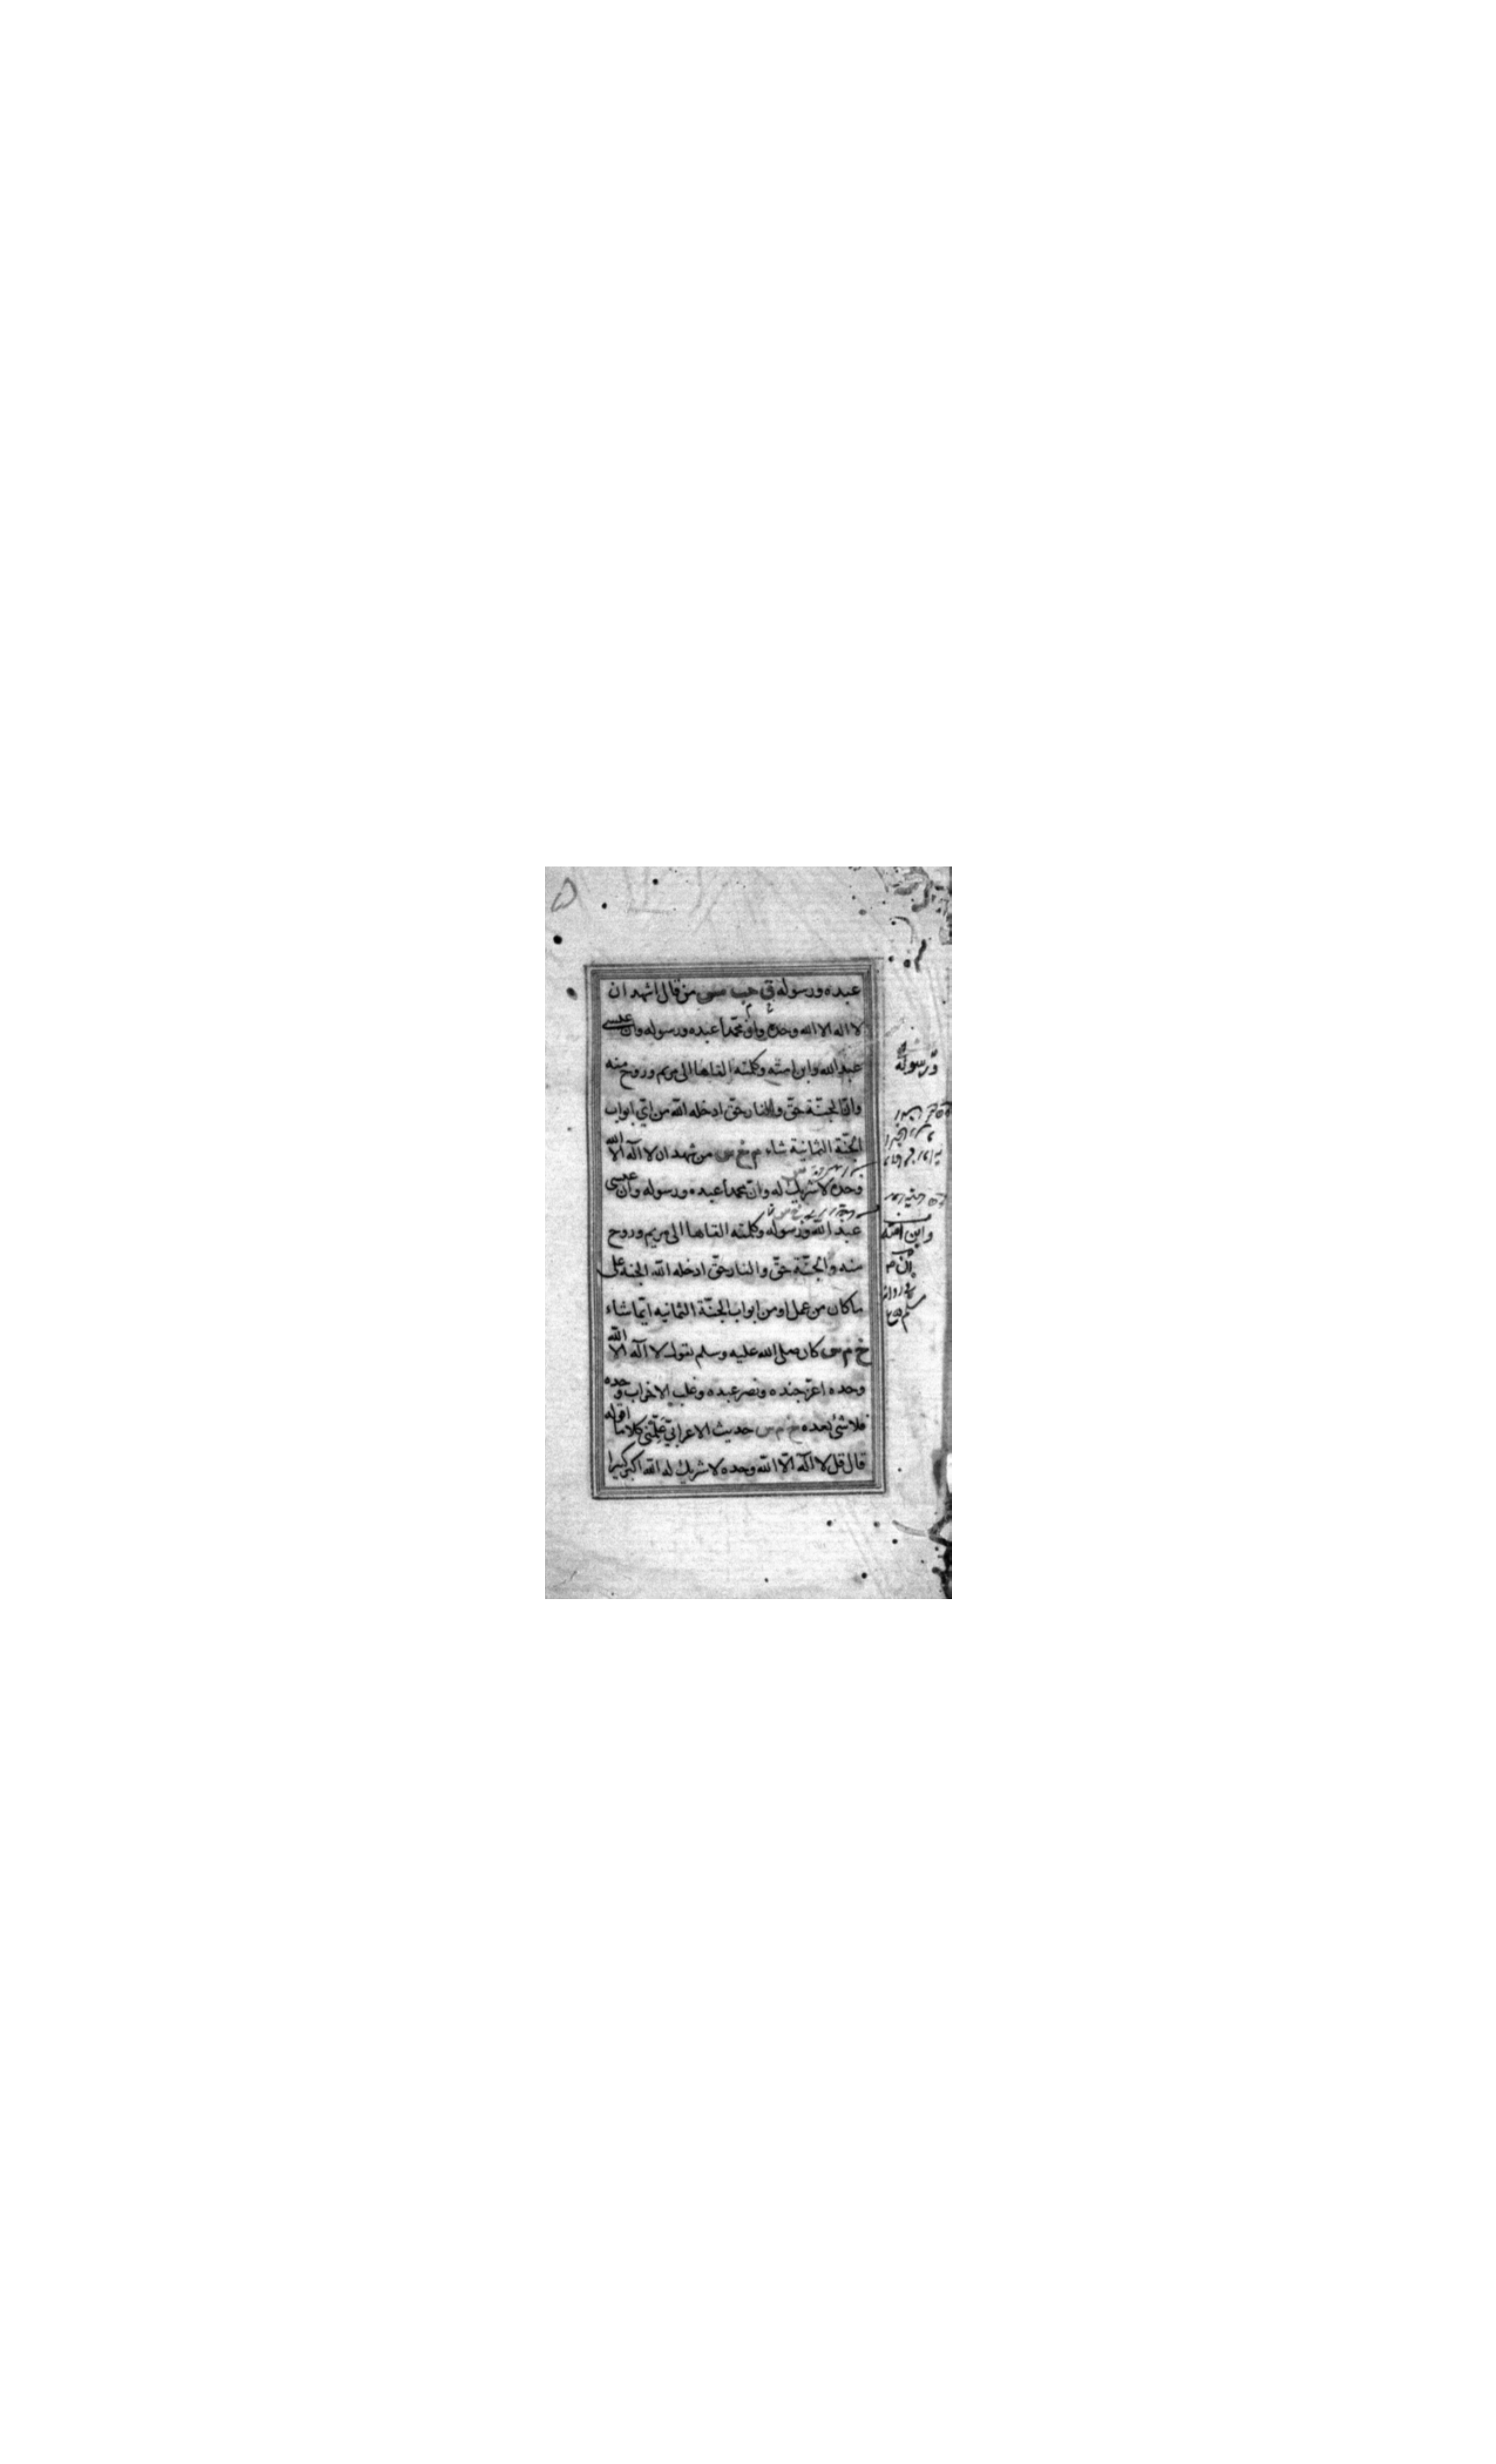 عبده ورسوله ق حب مس من قال اشهد ان
لا اله الا الله وحده وان محمدا عبده ورسوله وان عيسى
عبد الله وابن امته وكلمته القاها الى مريم وروح منه
وان الجنّة حقّ والنار حقّ ادخله الله من اي ابواب
الجنّة الثمانية شاء م خ س من شهد ان لا اله الا الله
وحده لا شريك له وانّ محمدا عبده ورسوله وان عيسى
عبد الله ورسوله وكلمته القاها الى مريم وروح
منه والجنّة حقّ والنار حقّ ادخله الله الجنة على
ما كان من عمل او من ابواب الجنّة الثمانيه ايّما شاء
خ م س كان صلى الله عليه وسلم يقول لا اله الا الله
وحده اعزّ جنده ونصر عبده وغلب الاحزاب وحده
فلا شئ بعده خ م س حديث الاعرابي علّمني كلاما اقوله
قال قل لا اله الّا الله وحده لا شريك له الله اكبر كبيرا
ورسوله
وابن امته